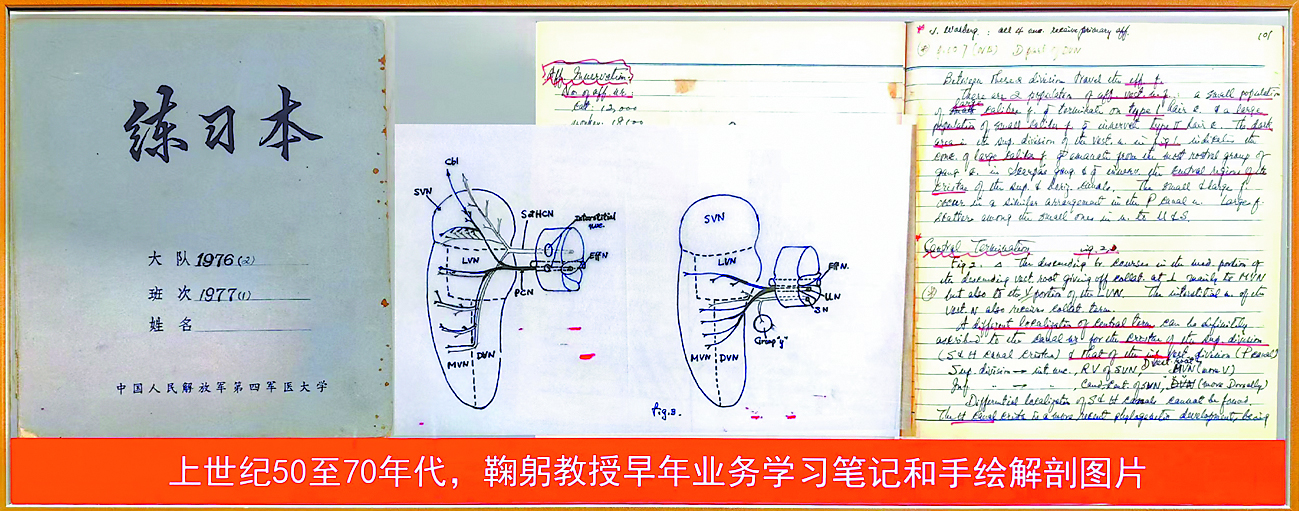 练习本
大队 1976(2)
班次 1977(1)
姓名
中国人民解放军第四军医大学
Aff Innervation
No of aff ax:
Cat: 12,000
Cbl
SVN
S & HCN
Interstitial
nuc.
LVN
Eff N
PCN
MVN
DVN
SVN
LVN
Eff N.
UN
SN
Group "y"
MVN
DVN
Fig. 3.
: all 4 receive primary aff.
101
Between these 2 division travel the eff f.
There are 2 population of aff vest. a small population
of large caliber f. terminate on type I hair c. & a large
population of small caliber f. type II hair c. The dark
area in the sup. division of the vest. n. in fig. 1 indicates the
conc. of large caliber f. from the most rostral group of
gang c. in Scarpas gang & the central region of the
Cristae of the sup. & horiz. canals. The small & large f.
occur in a similar arrangement in the P canal n. Large f.
scatter among the small ones in n. to U & S.
Central Termination Fig. 2,3
Fig 2. The descending br. courses in the med. portion of
the descending vest. root giving off collat. at mainly to MVN
but also to the portion of the LVN. The interstitial n. of the
vest. N also receives collat. term.
A different localization of central term. can be definitely
ascribed to the canal ax for the cristae of the sup. division
(S & H canal cristae) & that of the inf. vest. division (P canal)
Sup. division → int. nuc., RV of SVN, MVN (more V)
Inf. " → " , SVN, (more Dorsally)
Differential localization of S & H canals cannot be found.
The H canal crista is a more recent phylogenetic development, being
上世纪50至70年代，鞠躬教授早年业务学习笔记和手绘解剖图片